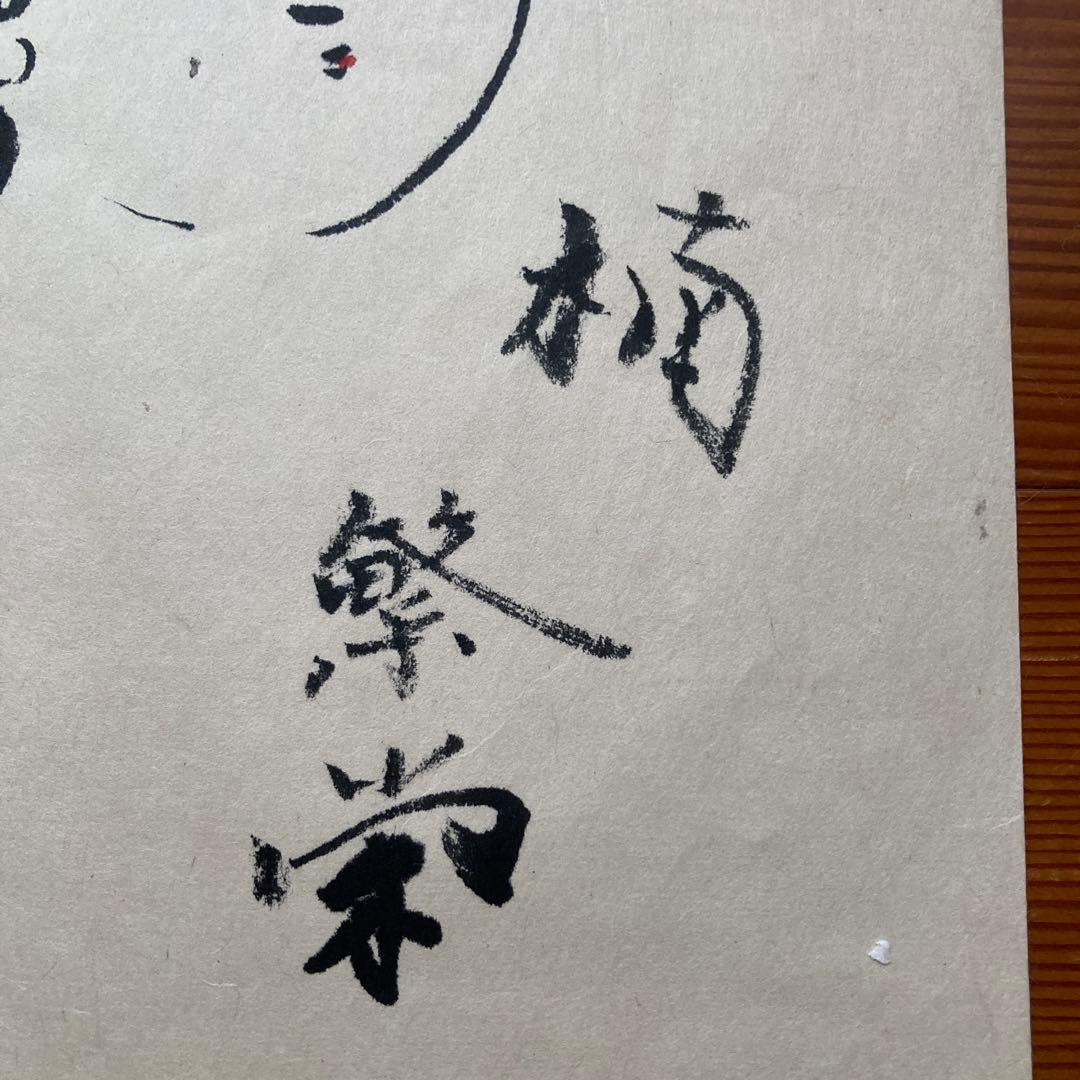 楠
繁
栄